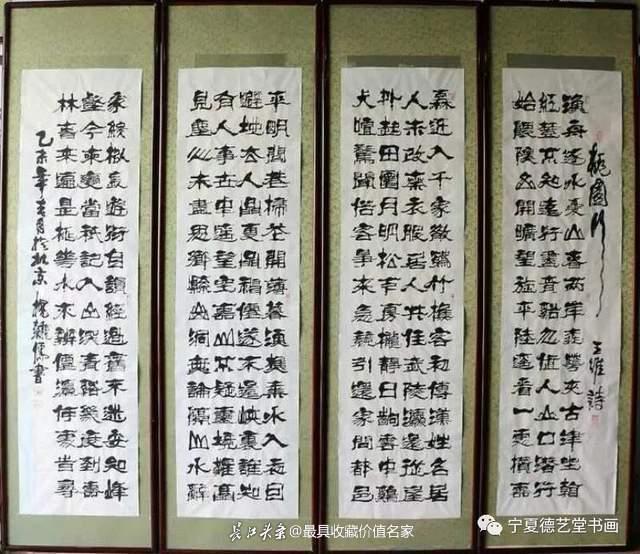 桃園行
王維詩
漁舟逐水愛山春兩岸桃花夾古津坐看
紅樹不知遠行盡青谿忽值人山口潛行
始隈隩山開曠望旋平陸遙看一處攢雲
樹近入千家散花竹樵客初傳漢姓名居
人未改秦衣服居人共住武陵源還從物
外起田園月明松下房櫳靜日出雲中雞
犬喧驚聞俗客爭來集競引還家問都邑
平明閭巷掃花開薄暮漁樵乘水入初因
避地去人間更問神僊遂不還峽裏誰知
有人事世中遙望空雲山不疑靈境難聞
見塵心未盡思鄉縣出洞無論隔山水辭
家終擬長遊衍自謂經過舊不迷安知峰
壑今來變當時秖記入山深青谿幾度到雲
林春來遍是桃花水不辨僊源何處尋
乙未年於北京儒書
长江头条@最具收藏价值名家
宁夏德艺堂书画